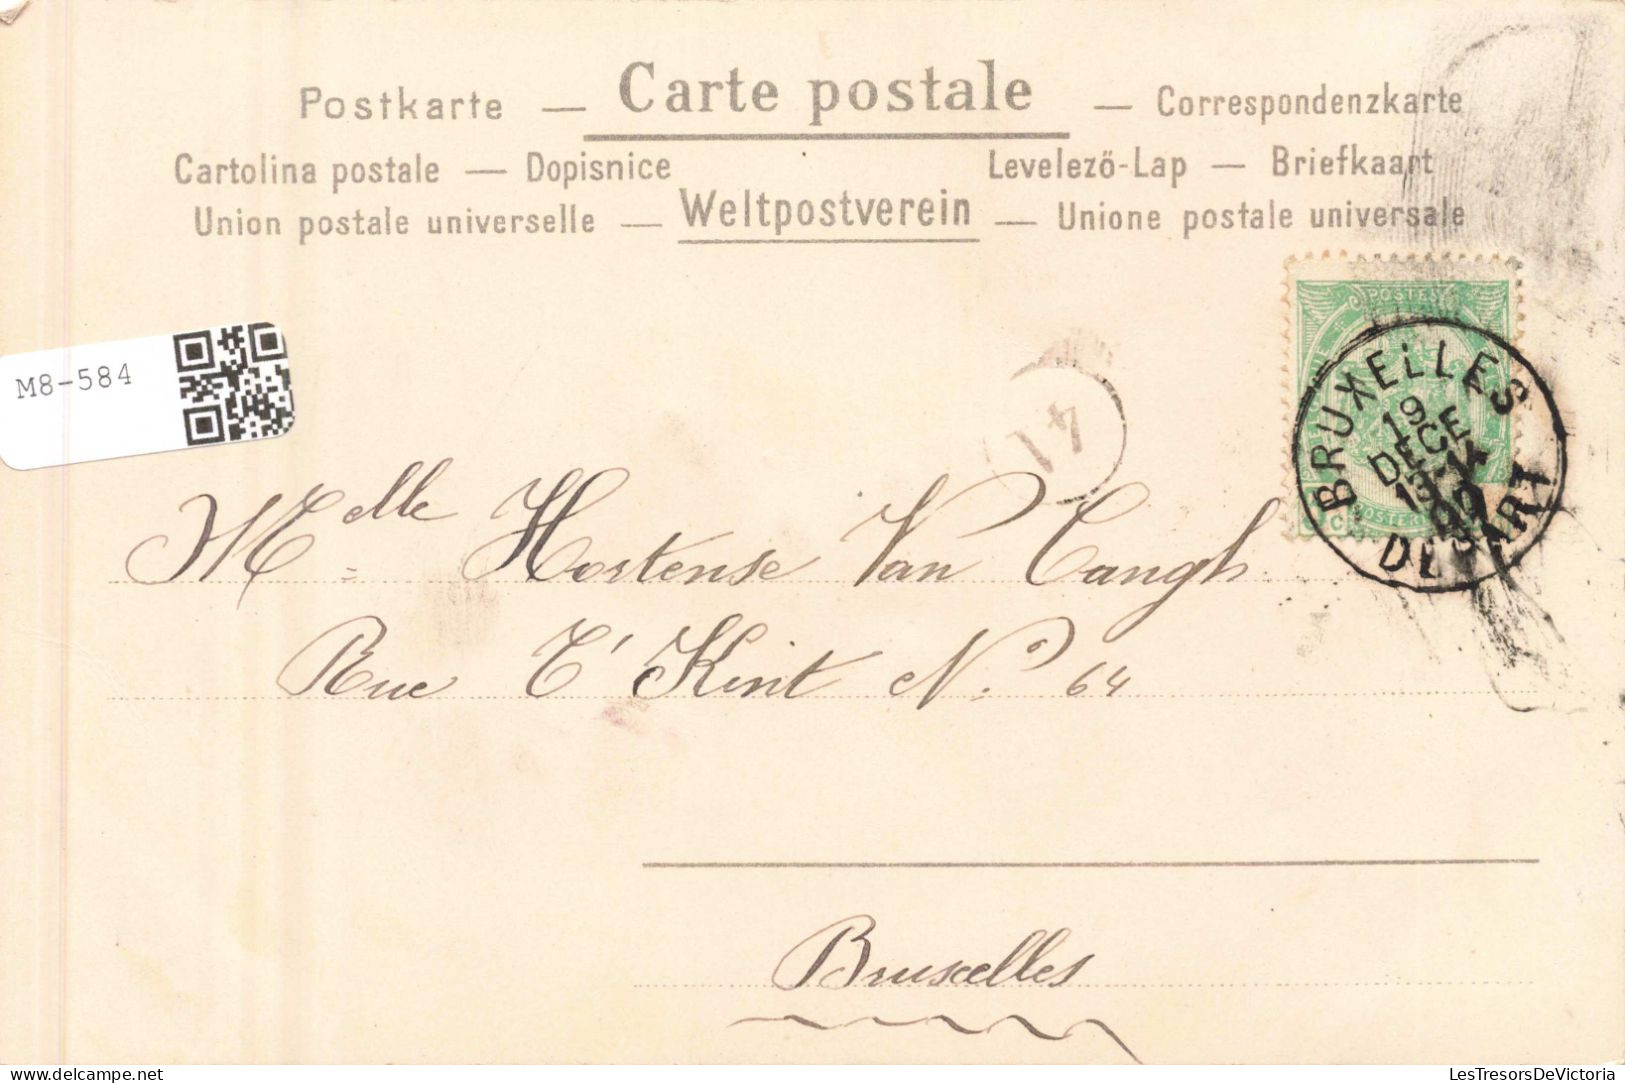 Postkarte — Carte postale — Correspondenzkarte
Cartolina postale — Dopisnice Levelező-Lap — Briefkaart
Union postale universelle — Weltpostverein — Unione postale universale
M8-584
POSTES
BRUXELLES
19
DECE
DEPART
41
Melle Hortense Van Cangh
Rue T'Kint No. 64
Bruxelles
LesTresorsDeVictoria